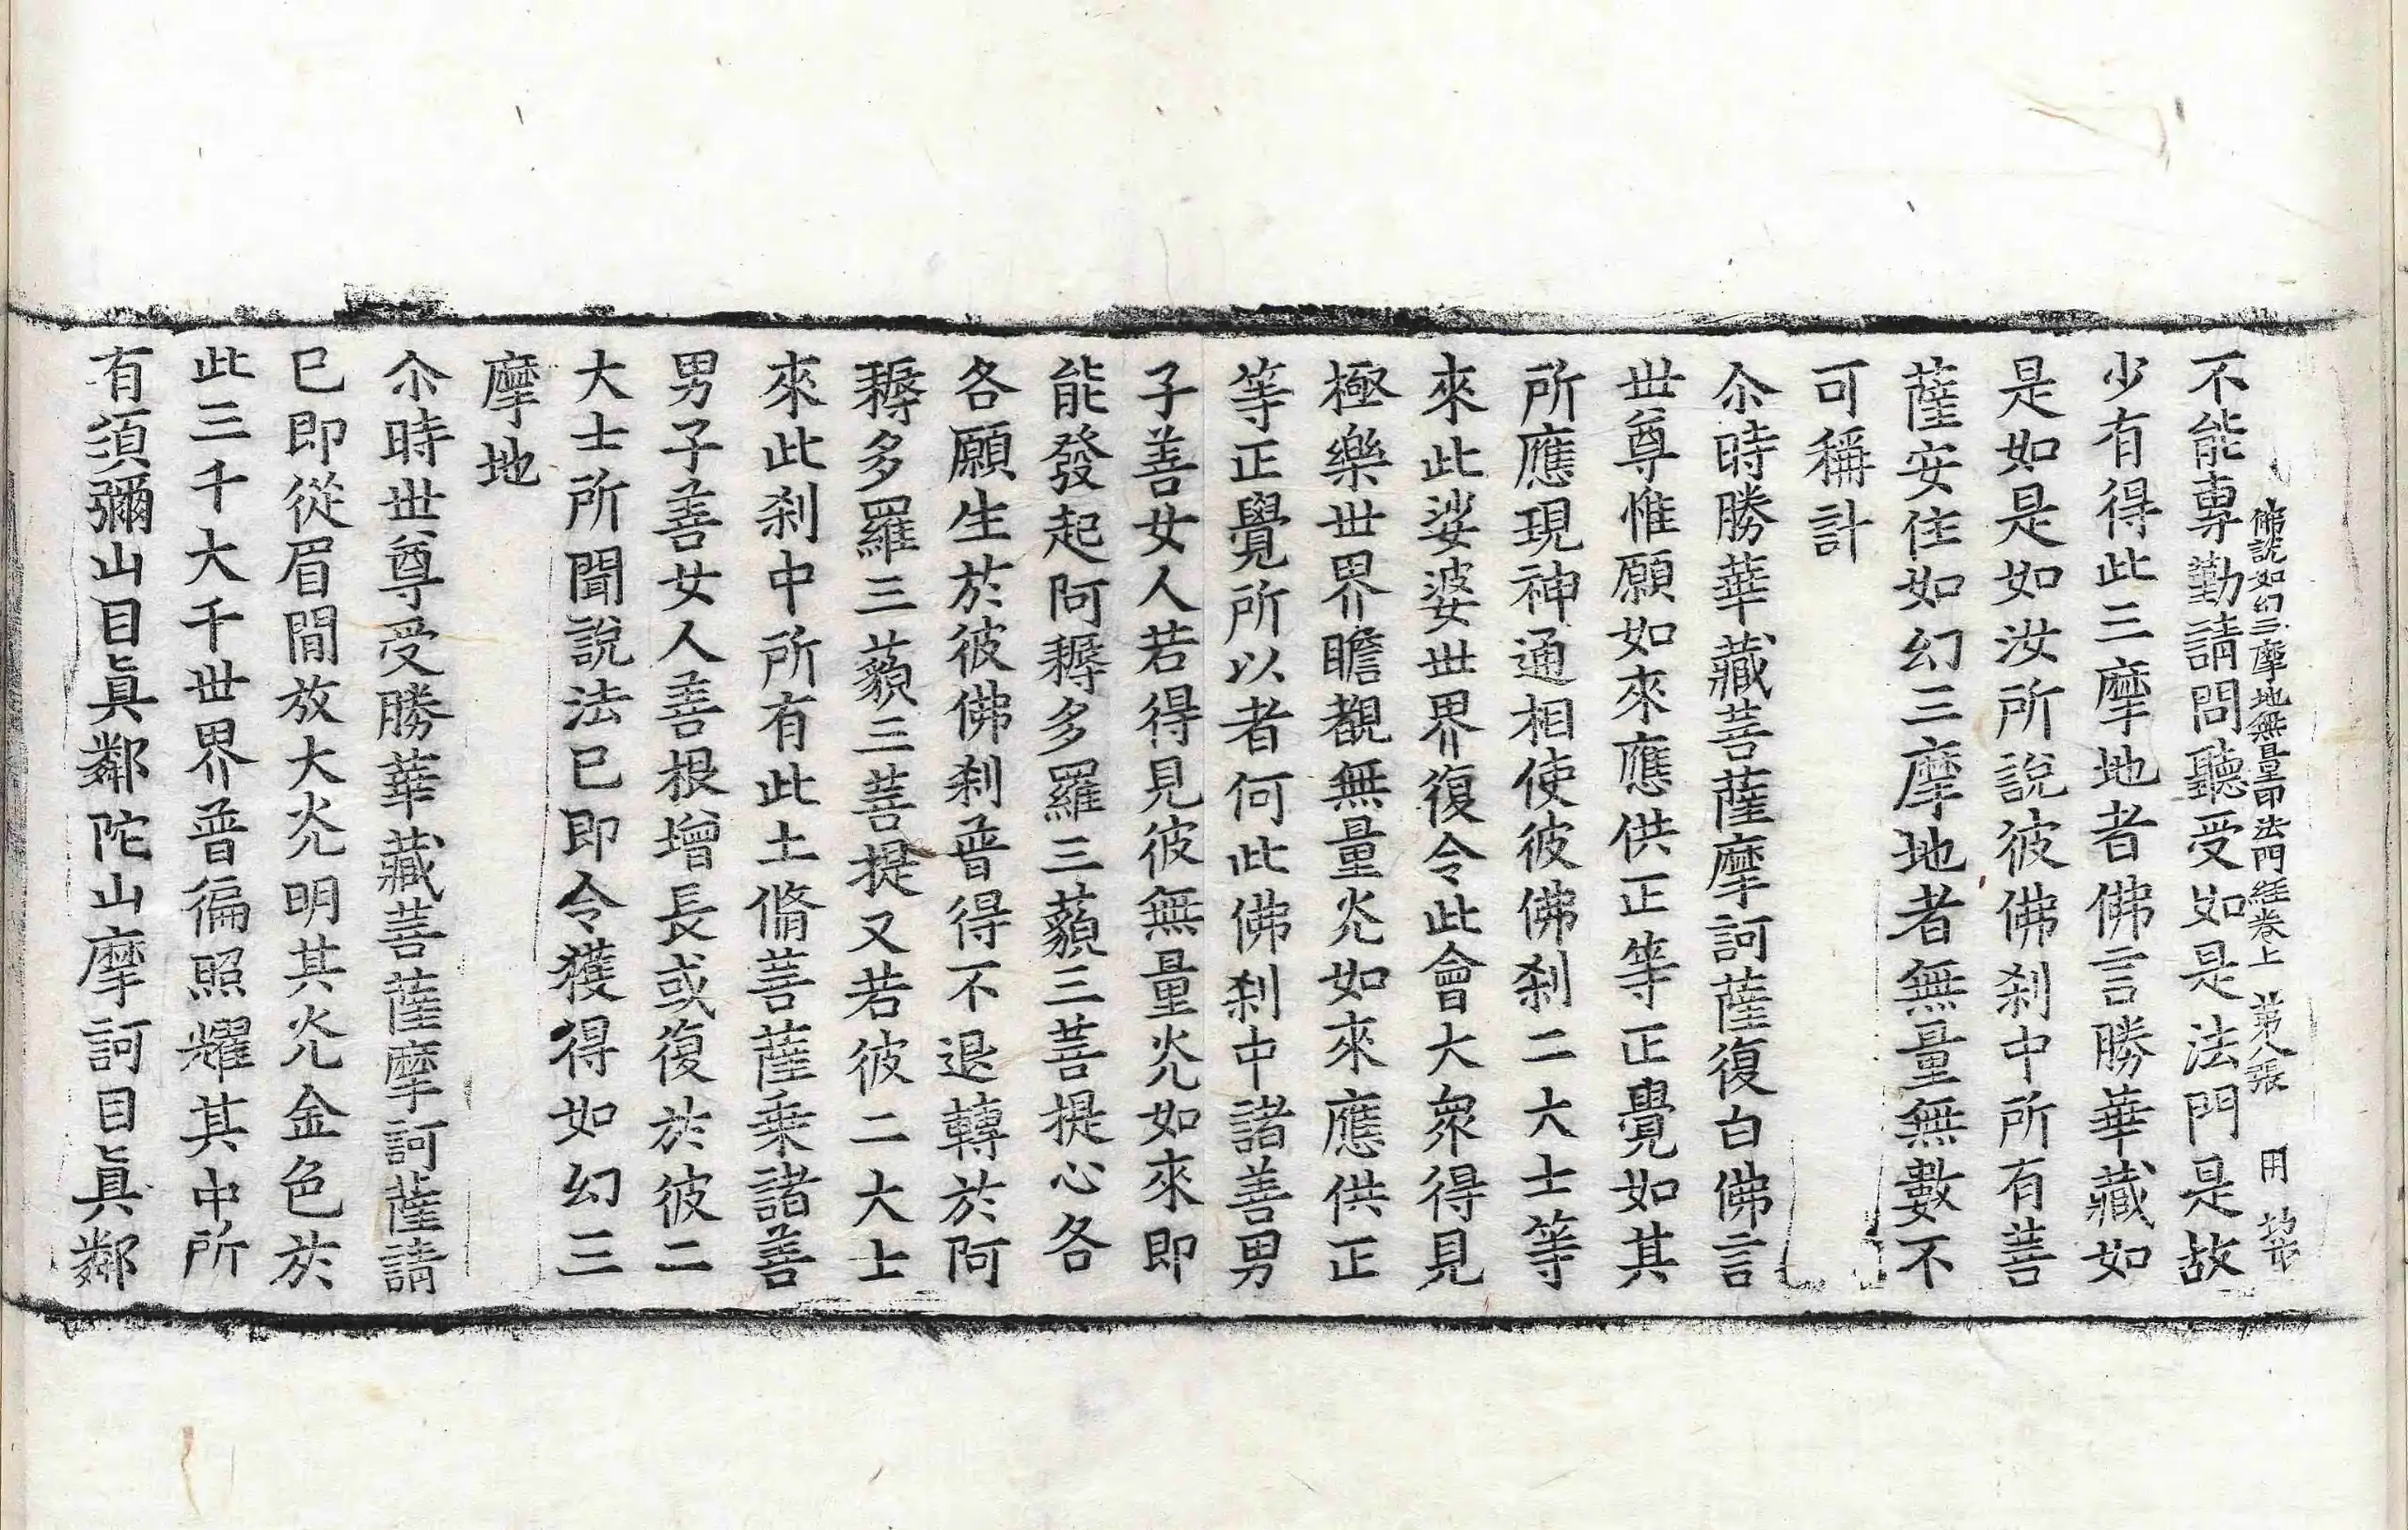 佛說如幻三摩地無量印法門經卷上 第八張 用
不能專勤請問聽受如是法門是故
少有得此三摩地者佛言勝華藏如
是如是如汝所說彼佛刹中所有菩
薩安住如幻三摩地者無量無數不
可稱計
尒時勝華藏菩薩摩訶薩復白佛言
世尊惟願如來應供正等正覺如其
所應現神通相使彼佛刹二大士等
來此娑婆世界復令此會大衆得見
極樂世界瞻覩無量光如來應供正
等正覺所以者何此佛刹中諸善男
子善女人若得見彼無量光如來即
能發起阿耨多羅三藐三菩提心各
各願生於彼佛刹普得不退轉於阿
耨多羅三藐三菩提又若彼二大士
來此刹中所有此土脩菩薩乗諸善
男子善女人善根增長或復於彼二
大士所聞說法已即令獲得如幻三
摩地
尒時世尊受勝華藏菩薩摩訶薩請
已即從眉間放大光明其光金色於
此三千大千世界普徧照耀其中所
有須彌山目眞鄰陀山摩訶目眞鄰